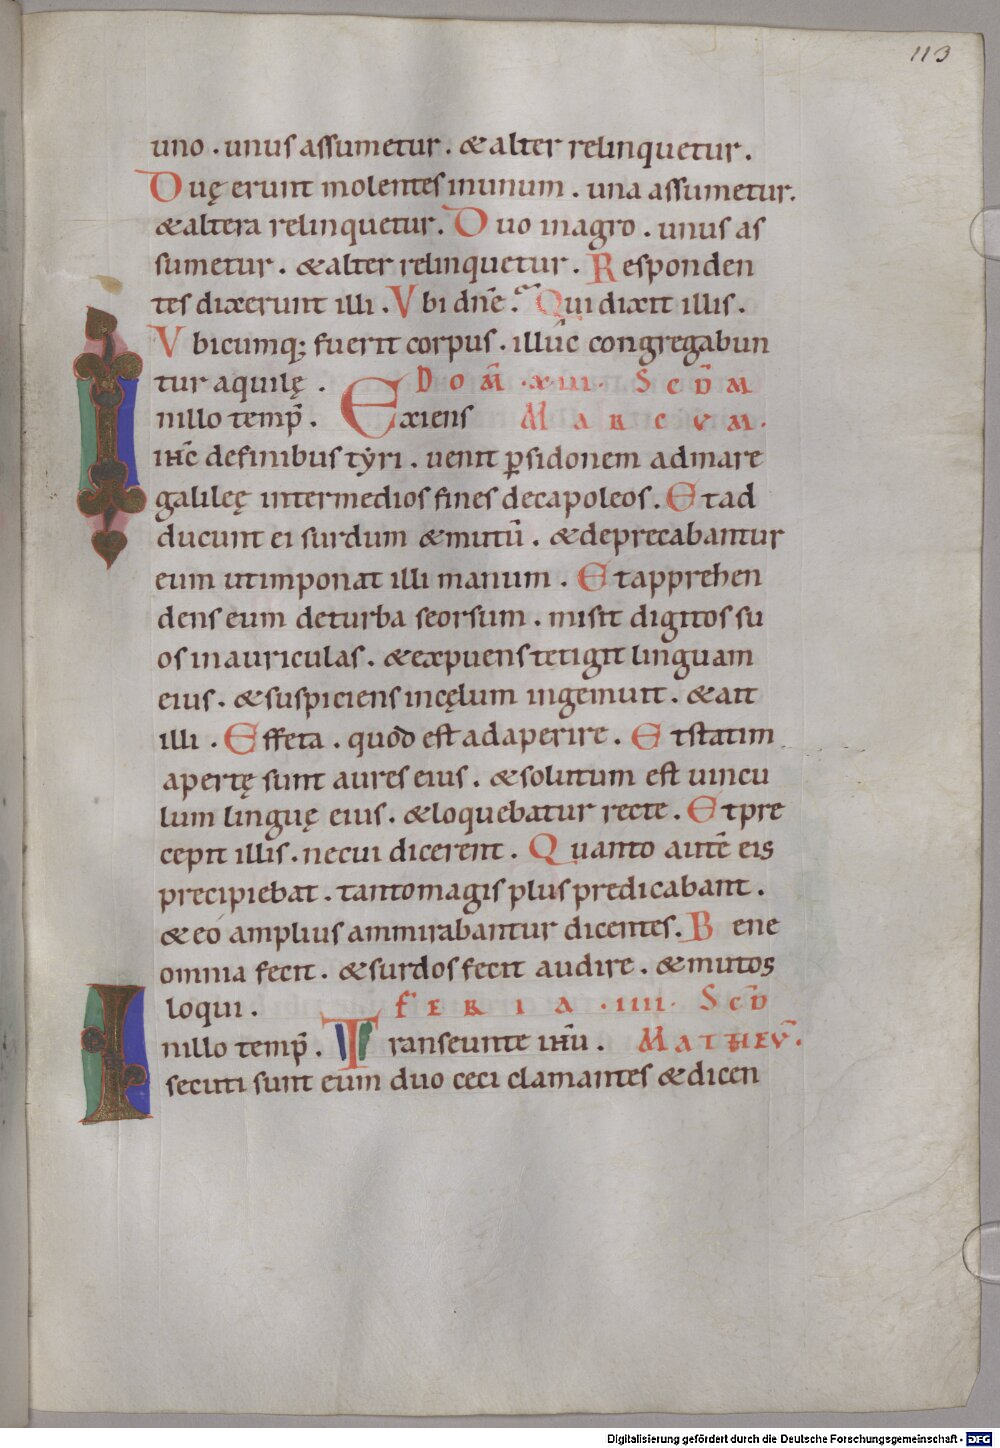 113
uno . unus assumetur . & alter relinquetur .
Duę erunt molentes inunum . una assumetur .
& altera relinquetur . Duo inagro . unus as
sumetur . & alter relinquetur . Responden
tes dixerunt illi . Vbi dn̄e ? Qui dixit illis .
Vbicumq; fuerit corpus . illuc congregabun
tur aquilę . DOM̄ . XIII . SCD̄M
I nillo temp̄ . Exiens MARCVM .
ih̄c definibus tyri . uenit p̱sidonem admare
galileę intermedios fines decapoleos . Et ad
ducunt ei surdum & mutū . & deprecabantur
eum utimponat illi manum . Et apprehen
dens eum deturba seorsum . misit digitos su
os inauriculas . & expuens tetigit linguam
eius . & suspiciens incęlum ingemuit . & ait
illi . Effeta . quod est adaperire . Et statim
apertę sunt aures eius . & solutum est uincu
lum linguę eius . & loquebatur recte . Et pre
cepit illis . necui dicerent . Quanto autē eis
precipiebat . tantomagis plus predicabant .
& eo amplius ammirabantur dicentes . Bene
omnia fecit . & surdos fecit audire . & mutos
loqui . FERIA . IIII . SCD̄
I nillo temp̄ . Transeunte ih̄u . MATHEV̄ .
secuti sunt eum duo ceci clamantes & dicen
Digitalisierung gefördert durch die Deutsche Forschungsgemeinschaft - DFG